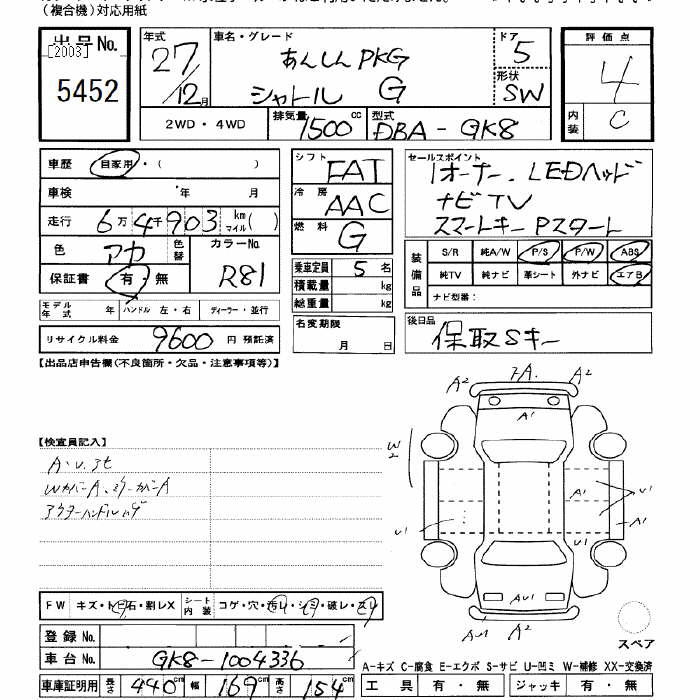 (複合機)対応用紙
出品No. 年式 車名・グレード ドア 評価点
[2003] 27 あんしんPKG 5 4
5452 12月 シャトル G 形状 SW
2WD・4WD 排気量 1500 cc 型式 DBA-GK8 内装 C
車歴 自家用・( )
車検 年 月
走行 6万4千903 km マイル( )
色 アカ 色替 カラーNo. R81
保証書 有・無
モデル年式 年 ハンドル 左・右 ディーラー・並行
リサイクル料金 9600 円 預託済
シフト FAT
冷房 AAC
燃料 G
乗車定員 5 名
積載量 kg
総重量 kg
名変期限 月 日
セールスポイント
1オーナー. LEDヘッド
ナビTV
スマートキー Pスタート
装備品 S/R 純A/W P/S P/W ABS
純TV 純ナビ 革シート 外ナビ エアB
ナビ型番:
後日品
保取Sキー
【出品店申告欄(不良箇所・欠品・注意事項等)】
【検査員記入】
A2 A2
A1
W2
A1 U1
U1 A1
U1
AU1
AU1 A2
スペア
FW キズ・トビ石・割レX シート内装 コゲ・穴・汚レ・シミ・破レ・スレ
登録No.
車台No. GK8-1004336
車庫証明用 長さ 440cm 幅 169cm 高さ 154cm
A-キズ C-腐食 E-エクボ S-サビ U-凹ミ W-補修 XX-交換済
工具 有・無 ジャッキ 有・無